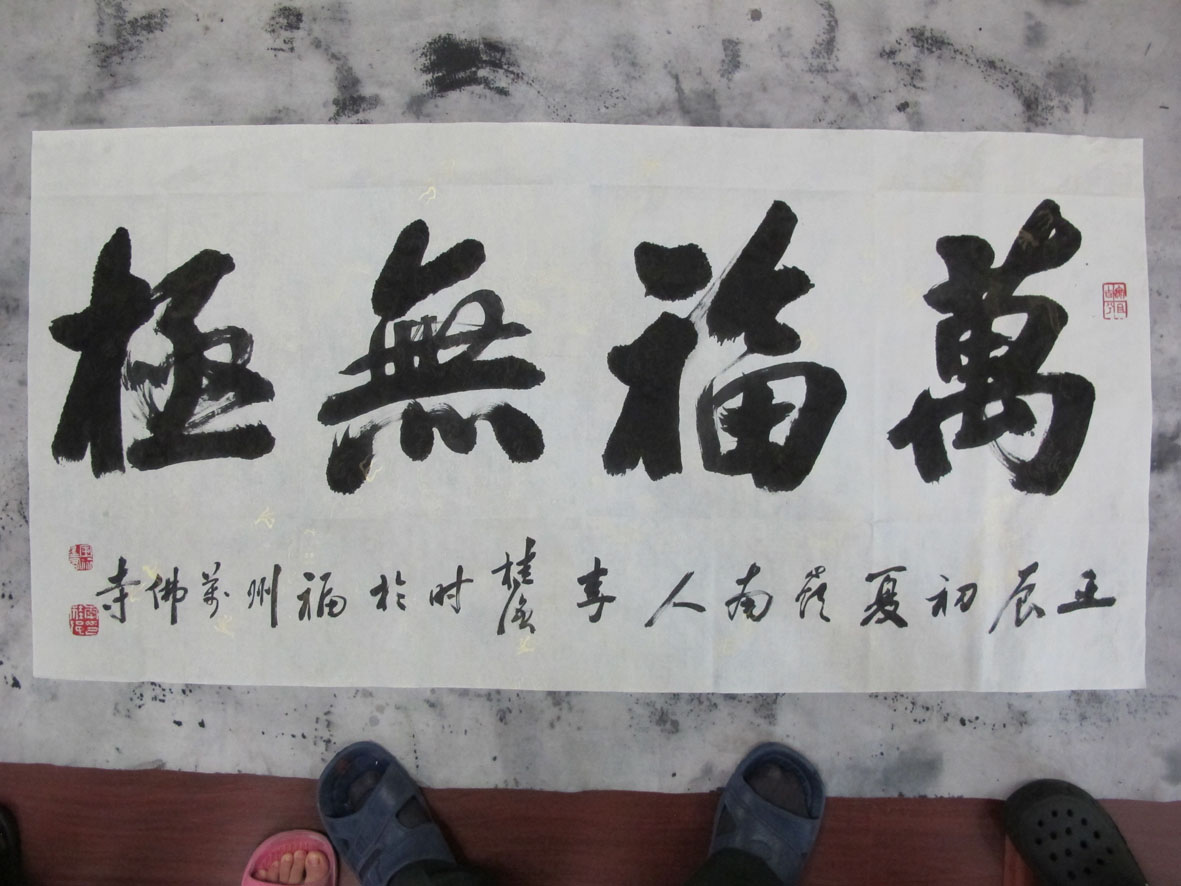 萬福無極
壬辰初夏嶺南人李桂时於福州萬佛寺